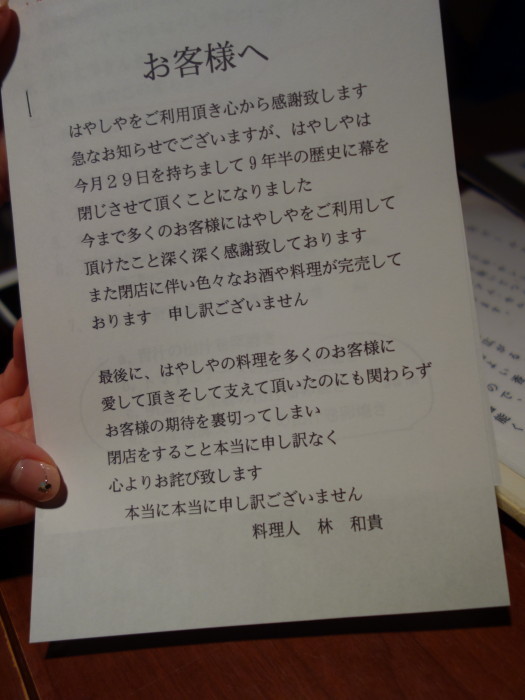 お客様へ
はやしやをご利用頂き心から感謝致します
急なお知らせでございますが、はやしやは
今月２９日を持ちまして９年半の歴史に幕を
閉じさせて頂くことになりました
今まで多くのお客様にはやしやをご利用して
頂けたこと深く深く感謝致しております
また閉店に伴い色々なお酒や料理が完売して
おります　申し訳ございません
最後に、はやしやの料理を多くのお客様に
愛して頂きそして支えて頂いたのにも関わらず
お客様の期待を裏切ってしまい
閉店をすること本当に申し訳なく
心よりお詫び致します
本当に本当に申し訳ございません
料理人　林　和貴